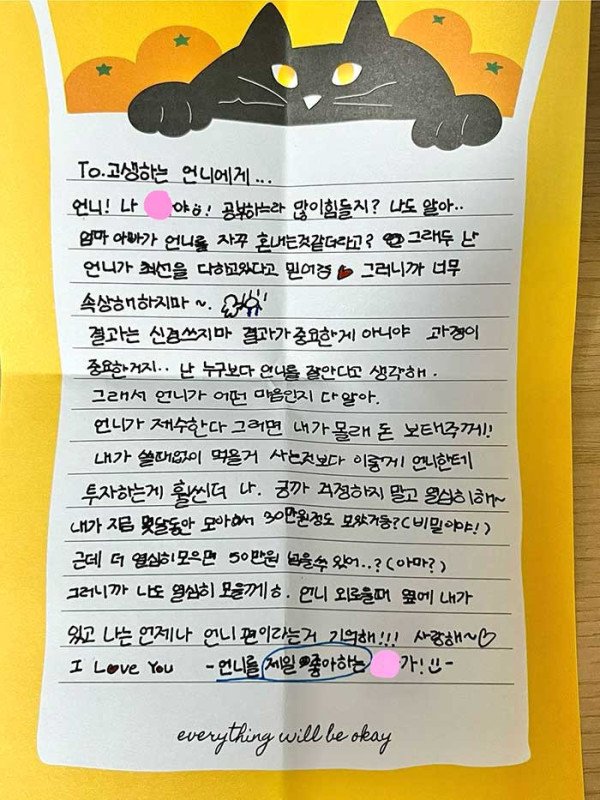 To.고생하는 언니에게...
언니! 나 야ㅎ! 공부하느라 많이힘들지? 나도 알아..
엄마 아빠가 언니를 자꾸 혼내는것같더라고? 그래두 난
언니가 최선을 다하고있다고 믿어경 그러니까 너무
속상해하지마~.
결과는 신경쓰지마 결과가 중요한게 아니야 과정이
중요한거지.. 난 누구보다 언니를 잘안다고 생각해.
그래서 언니가 어떤 마음인지 다 알아.
언니가 재수한다 그러면 내가 몰래 돈 보태주께!
내가 쓸때없이 먹을거 사는것보다 이렇게 언니한테
투자하는게 훨씬더 나. 긍까 걱정하지 말고 열심히해~
내가 지금 몇달동안 모아놔서 30만원정도 모았거등?(비밀이야!)
근데 더 열심히모으면 50만원 넘을수 있어..?(아마?)
그러니까 나도 열심히 모을께ㅎ. 언니 외로울때 옆에 내가
있고 나는 언제나 언니편이라는거 기억해!!! 사랑해~♡
I Love You -언니를 제일 좋아하는 가!-
everything will be okay